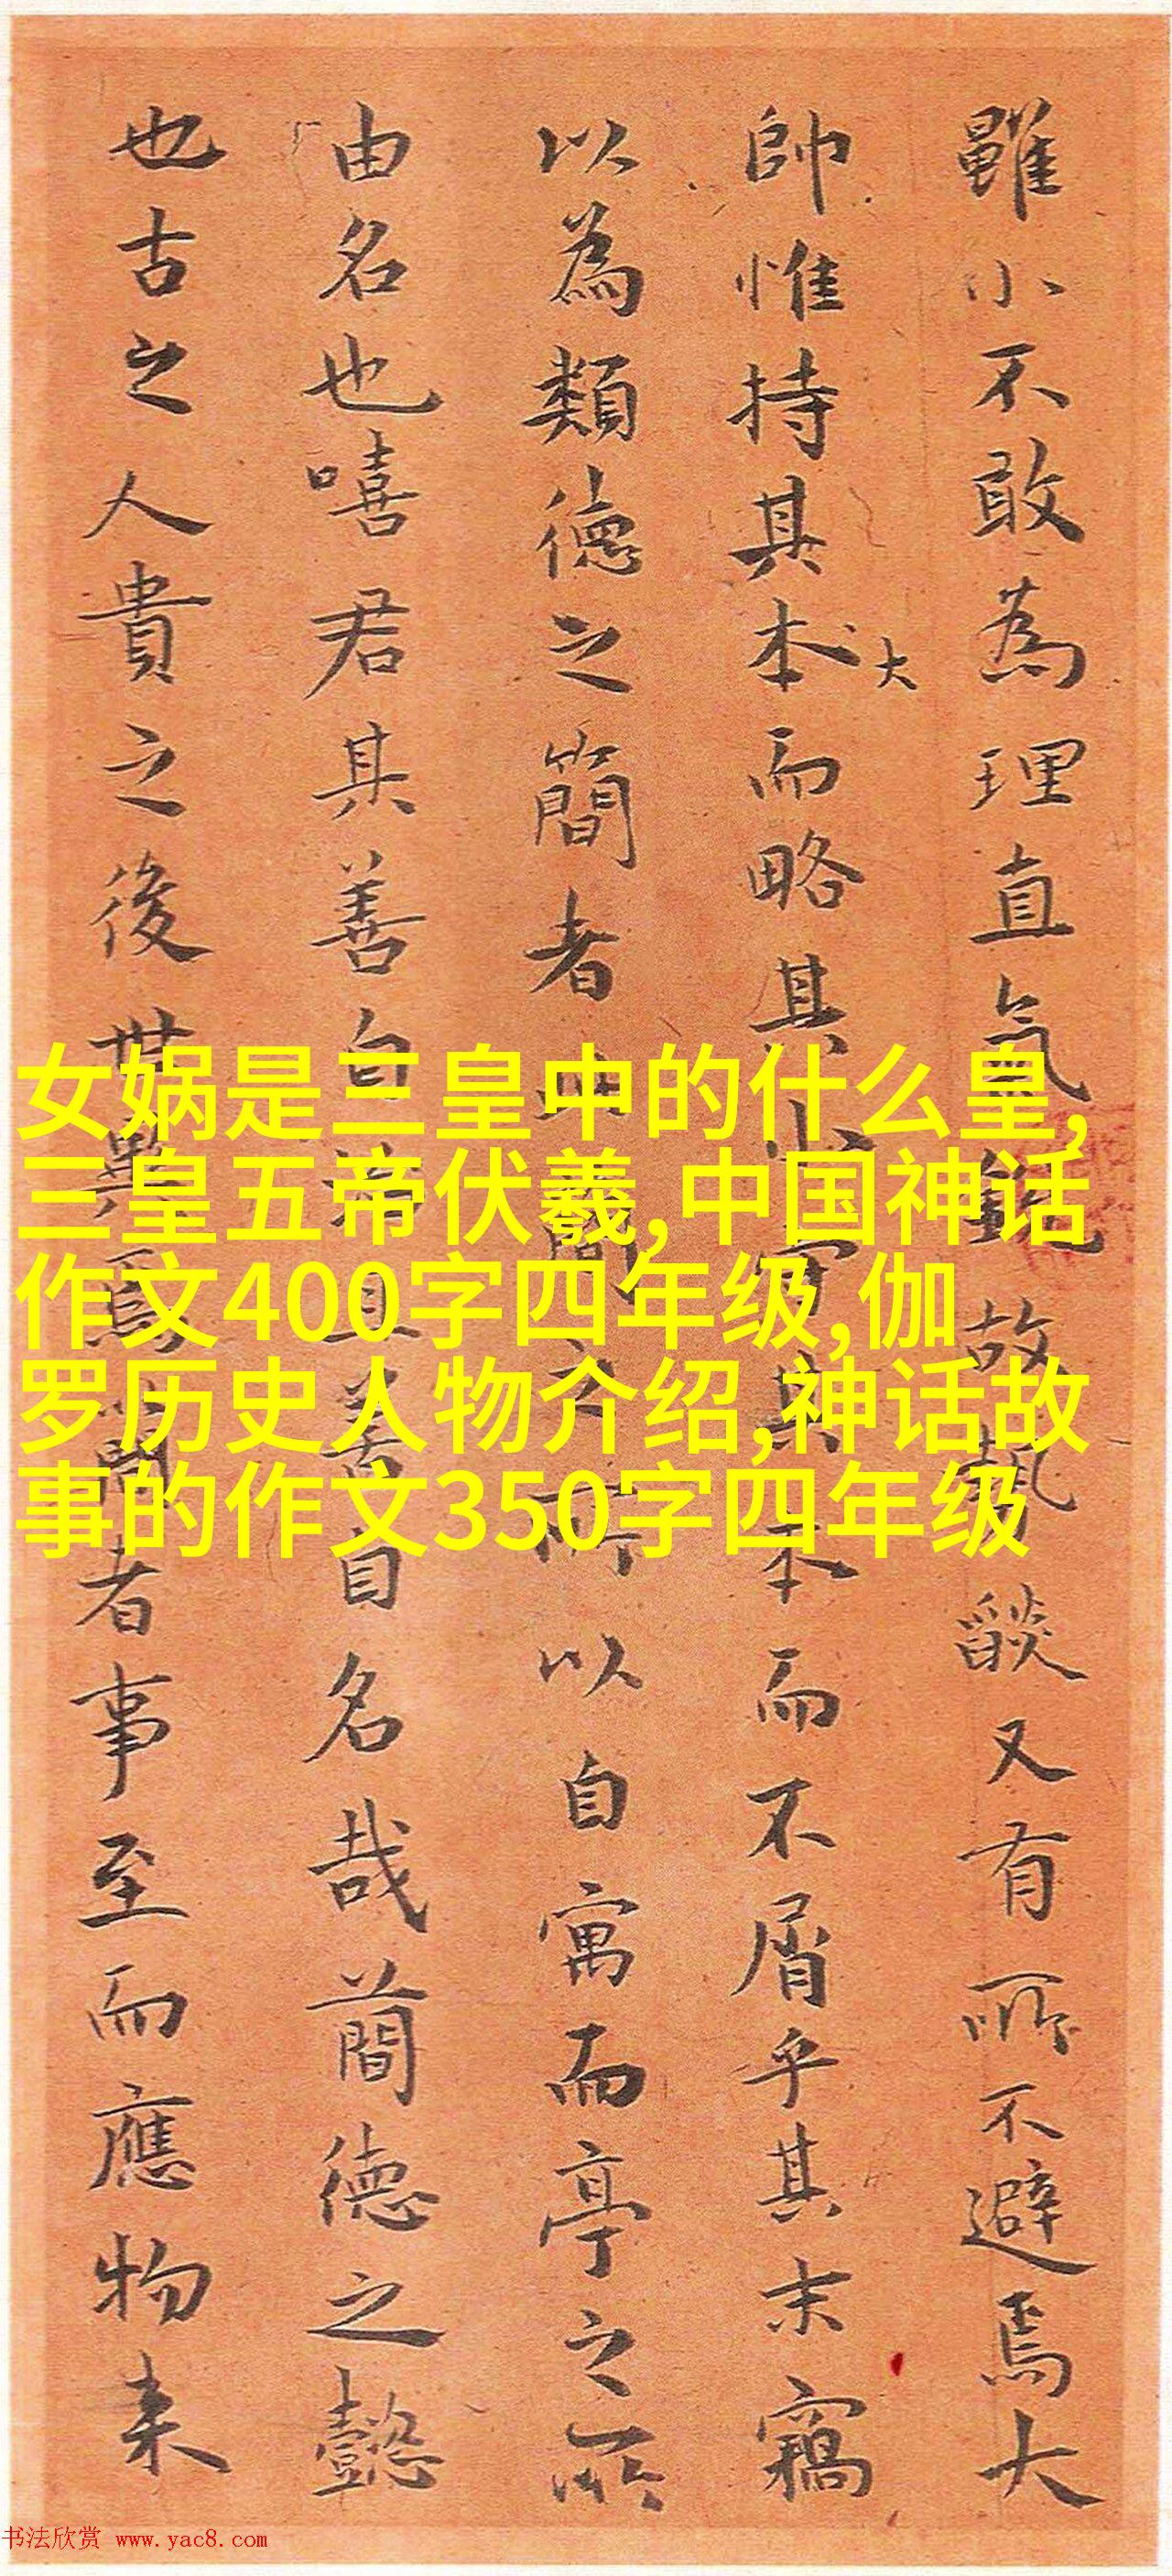 雖小不敢為理直氣
故
燄又有所不避焉大
帥惟持其本大而略其小
其本而不屑乎其末竊
以為類德之簡者
簡之所以自寓而亭之所
由名也嘻君其善自
且善自名哉簡德之懿
也古之人貴之後世
為簡者事至而應物来
女娲是三皇中的什么皇,
三皇五帝伏羲,中国神话
作文400字四年级,伽
罗历史人物介绍,神话故
事的作文350字四年级
书法欣赏 www.yac8.com